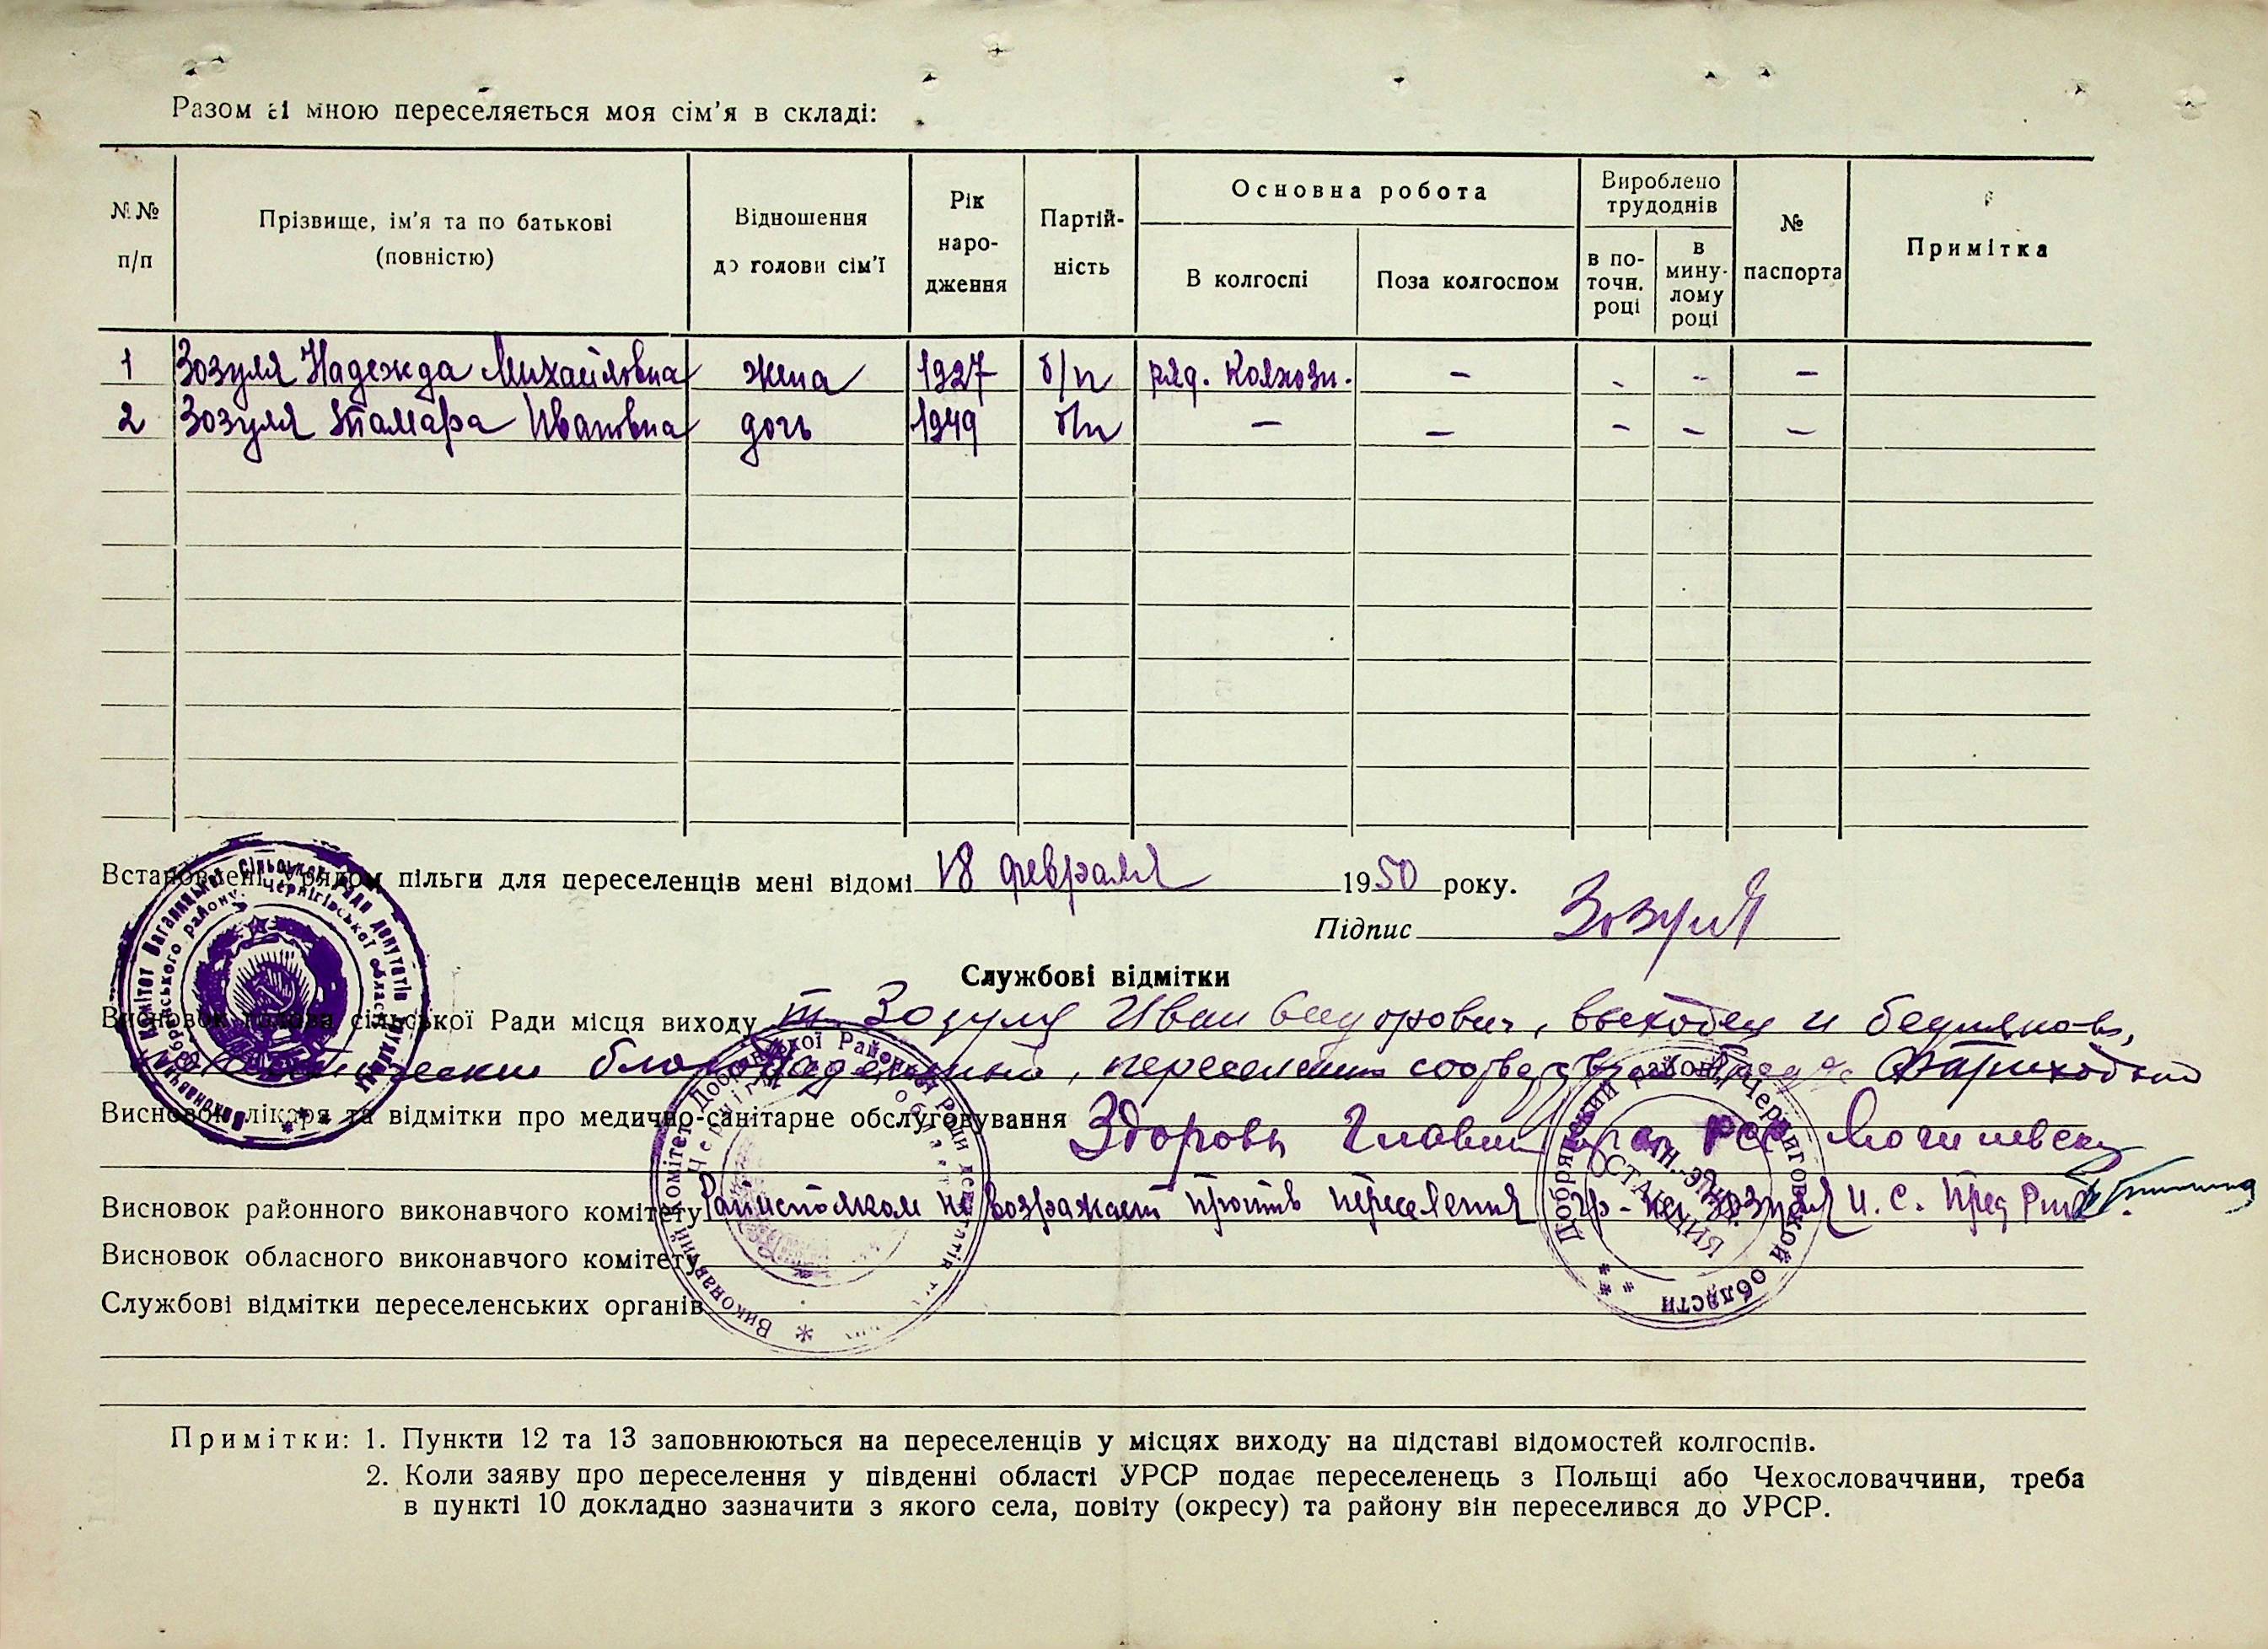 Разом зі мною переселяється моя сім'я в складі:
№№ п/п
Прізвище, ім'я та по батькові (повністю)
Відношення до голови сім'ї
Рік народження
Партійність
Основна робота
В колгоспі
Поза колгоспом
Вироблено трудоднів
в поточн. році
в минулому році
№ паспорта
Примітка
1 Зозуля Надежда Михайловна жена 1927 б/п ряд. колхозн. - - - -
2 Зозуля Тамара Ивановна дочь 1949 б/п - - - - -
Встановлені Урядом пільги для переселенців мені відомі 18 февраля 1950 року.
Підпис Зозуля
Службові відмітки
Висновок голови сільської Ради місця виходу т. Зозуля Иван, выходец и бедняков,
переселении
Висновок лікаря та відмітки про медично-санітарне обслуговування Здоровы
Висновок районного виконавчого комітету Райисполком не возражает против переселения гр-на Зозуля И. С. Пред
Висновок обласного виконавчого комітету
Службові відмітки переселенських органів
Примітки: 1. Пункти 12 та 13 заповнюються на переселенців у місцях виходу на підставі відомостей колгоспів.
2. Коли заяву про переселення у південні області УРСР подає переселенець з Польщі або Чехословаччини, треба
в пункті 10 докладно зазначити з якого села, повіту (окресу) та району він переселився до УРСР.